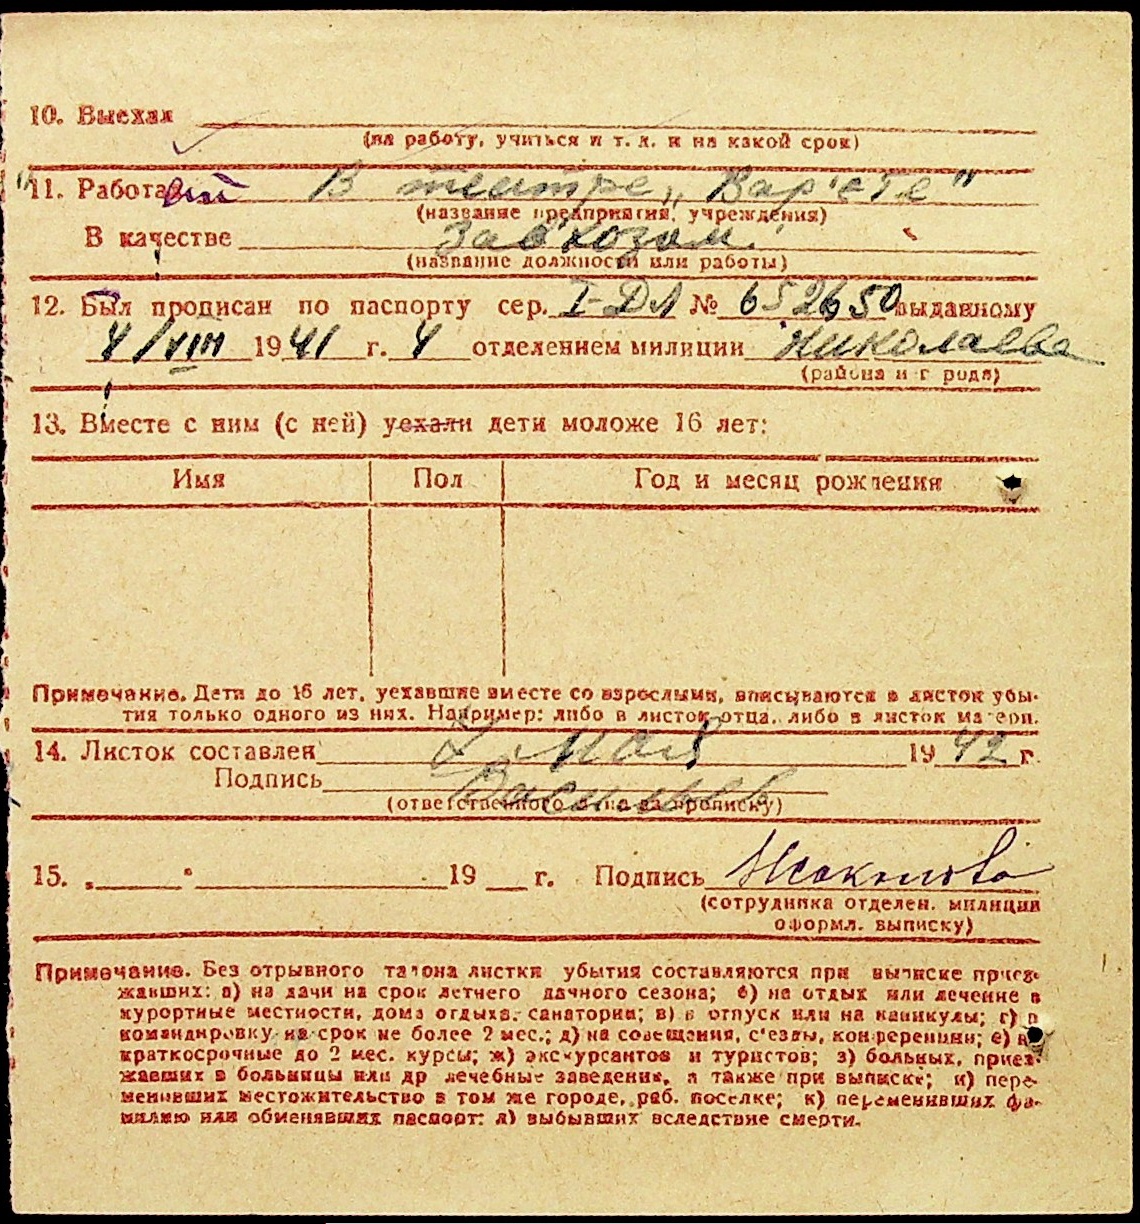 10. Выехал
(на работу, учиться и т. д. и на какой срок)
11. Работа В театре „Варьете"
(название предприятия, учреждения)
В качестве Завхозом.
(название должности или работы)
12. Был прописан по паспорту сер. I-ДЛ № 652650 выданному
4/VIII 1941 г. 4 отделением милиции Николаева
(района и города)
13. Вместе с ним (с ней) уехали дети моложе 16 лет:
Имя Пол Год и месяц рождения
Примечание. Дети до 16 лет, уехавшие вместе со взрослыми, вписываются в листок убы-
тия только одного из них. Например: либо в листок отца, либо в листок матери.
14. Листок составлен 7 мая 1942 г.
Подпись Васильев
(ответственного лица за прописку)
15. „ " 19 г. Подпись
(сотрудника отделен. милиции
оформл. выписку)
Примечание. Без отрывного талона листки убытия составляются при выписке приез-
жавших: а) на дачи на срок летнего дачного сезона; б) на отдых или лечение в
курортные местности, дома отдыха, санатории; в) в отпуск или на каникулы; г) в
командировку на срок не более 2 мес.; д) на совещания, с'езды, конференции; е) на
краткосрочные до 2 мес. курсы; ж) экскурсантов и туристов; з) больных, приез-
жавших в больницы или др лечебные заведения, а также при выписке; и) пере-
менивших местожительство в том же городе, раб. поселке; к) переменивших фа-
милию или обменявших паспорт; л) выбывших вследствие смерти.